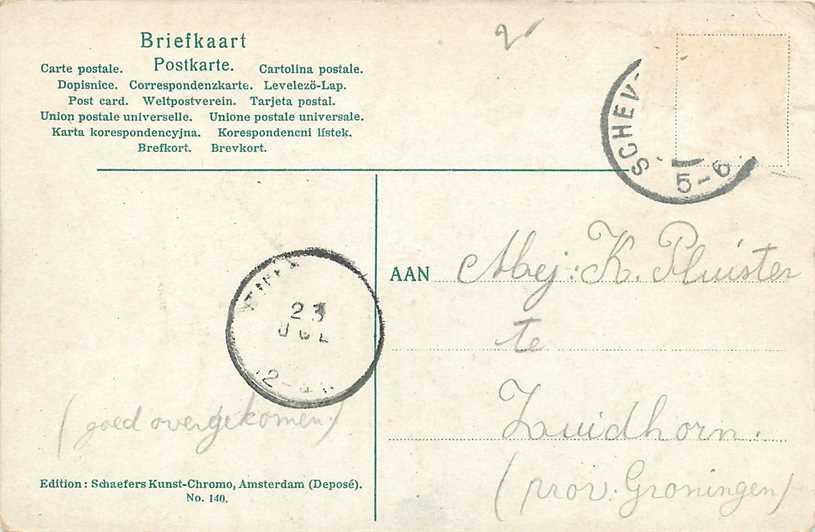 Briefkaart
Postkarte.
Carte postale. Cartolina postale.
Dopisnice. Correspondenzkarte. Levelezö-Lap.
Post card. Weltpostverein. Tarjeta postal.
Union postale universelle. Unione postale universale.
Karta korespondencyjna. Korespondencni lístek.
Brefkort. Brevkort.
2
SCHEV
5-6
23
JUL
AAN Mej: K. Pluister
te
Zuidhorn.
(prov. Groningen)
(goed overgekomen)
Edition: Schaefers Kunst-Chromo, Amsterdam (Deposé).
No. 140.